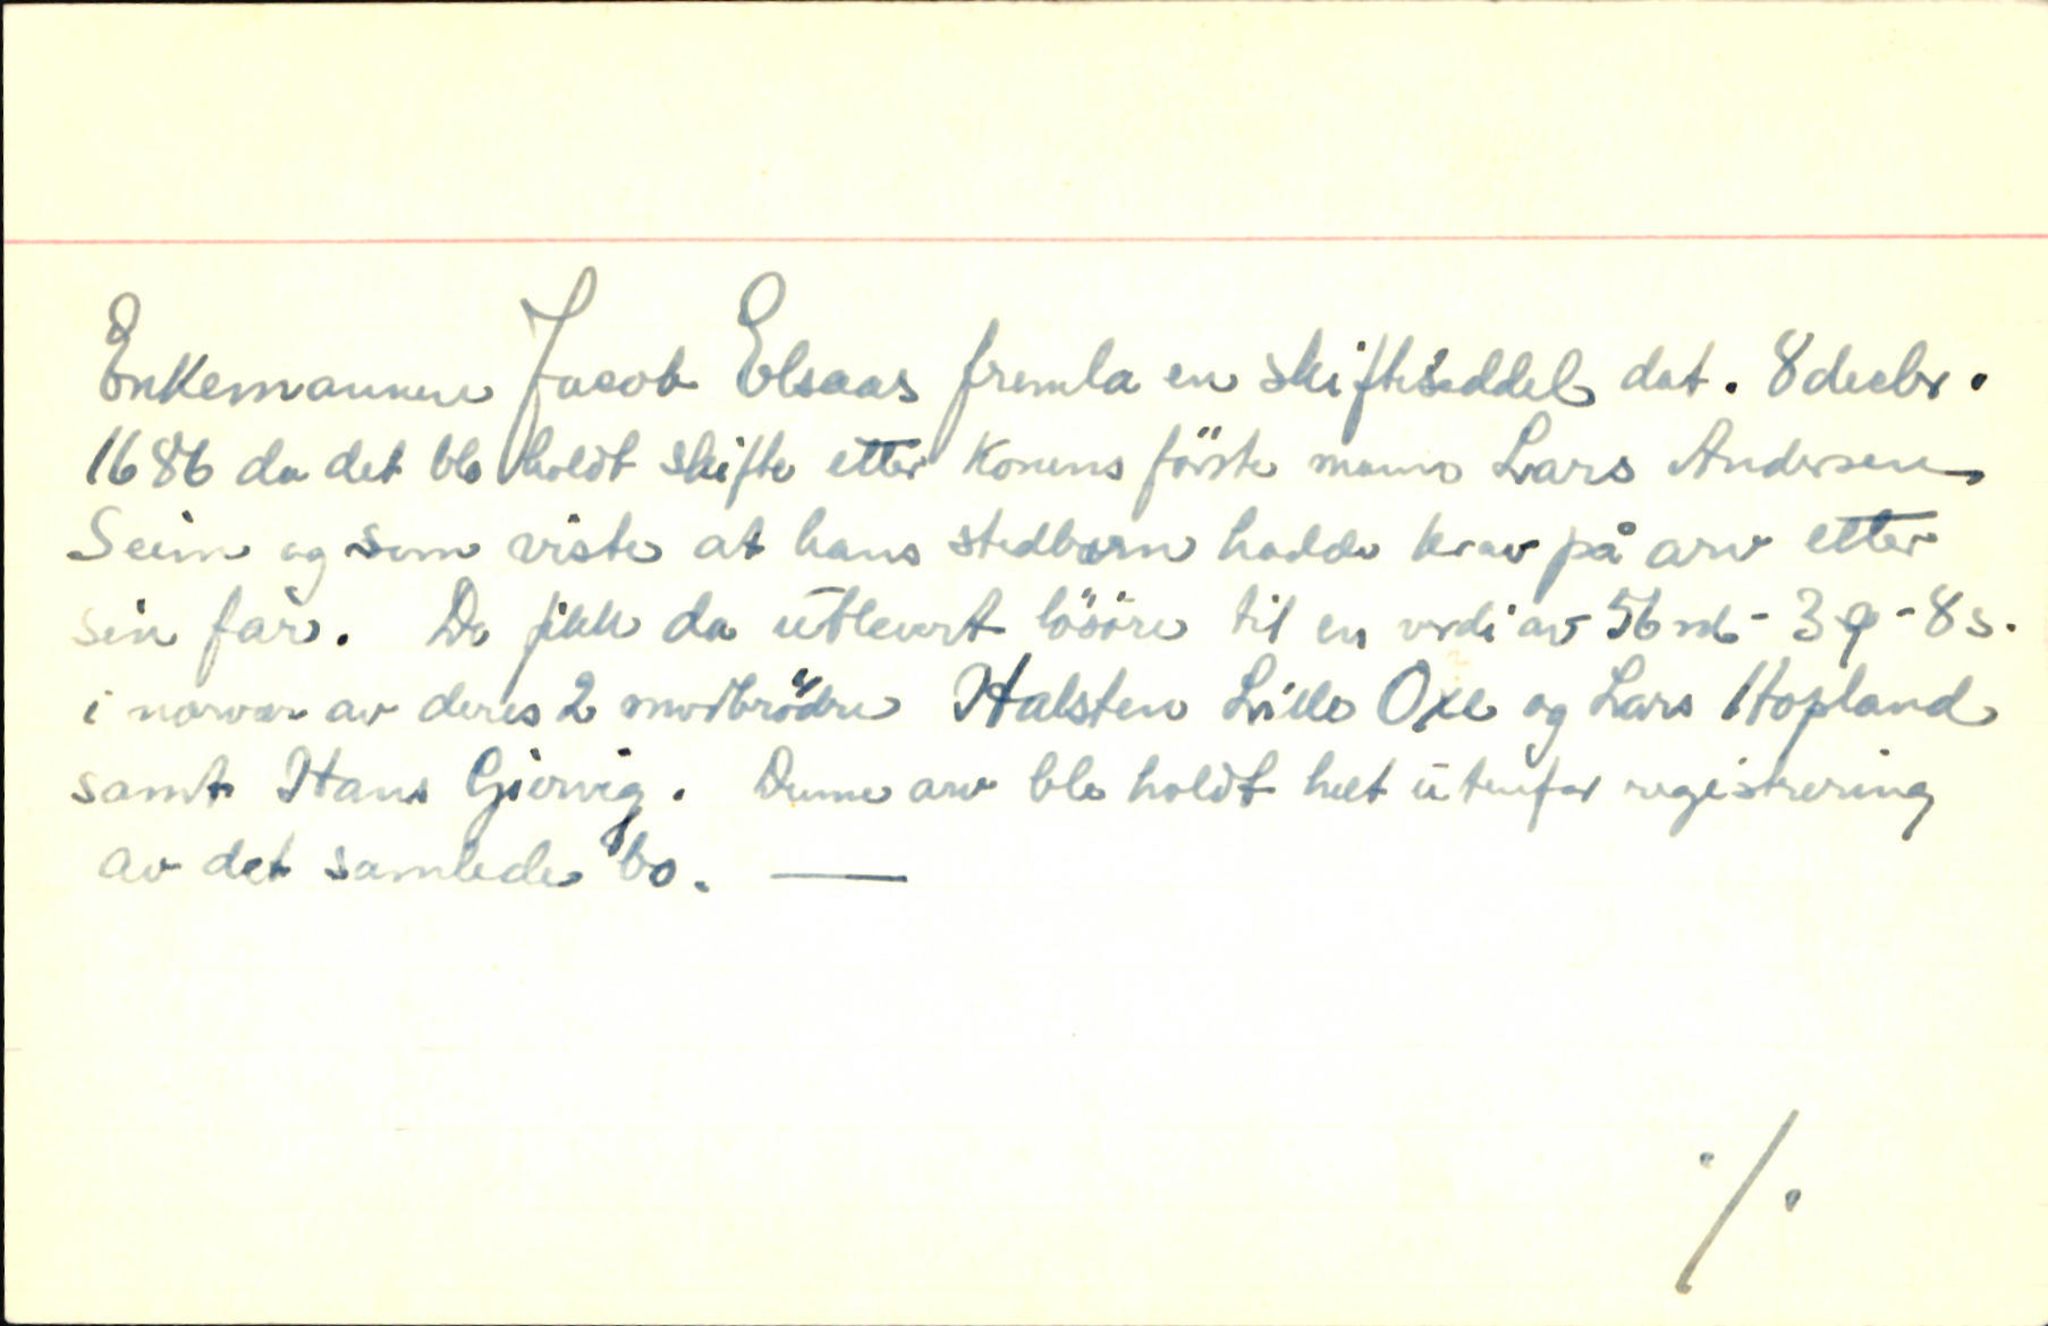 Enkemannen Jacob Elsaas fremla en skifteseddel dat. 8 decbr.
1686 da det ble holdt skifte etter konens første mann Lars Andersen
Seim og som viste at hans stedbørn hadde krav på arv etter
sin far. De fikk da utlevert løsöre til en verdi av 56 rd - 3 q - 8 s.
i nærvær av deres 2 morbrødre Halsten Lille Oxe og Lars Hopland
samt Hans Gjervig. Denne arv ble holdt helt utenfor registrering
av det samlede bo. —
./.